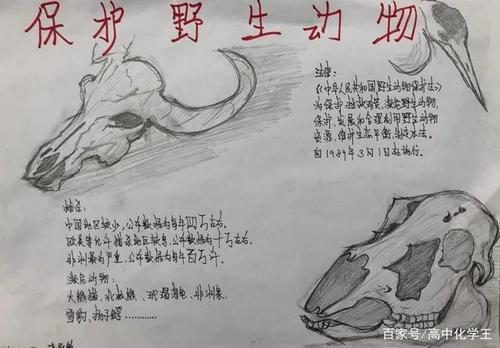 保护野生动物
法律:
《中华人民共和国野生动物保护法》
为保护、拯救珍贵、濒危野生动物,
保护、发展和合理利用野生动物
资源,维护生态平衡,制定本法。
自1989年3月1起施行。
猎杀:
中国地区较少,公布数据为每年四万左右。
欧美等北斗 猎杀地区较多,公布数据为十万左右。
非洲最为严重,公布数据为每年百万斗。
濒危动物:
大熊猫、北极熊、玳瑁海龟、非洲象、
雪豹、扬子鳄…………
百家号/高中化学王